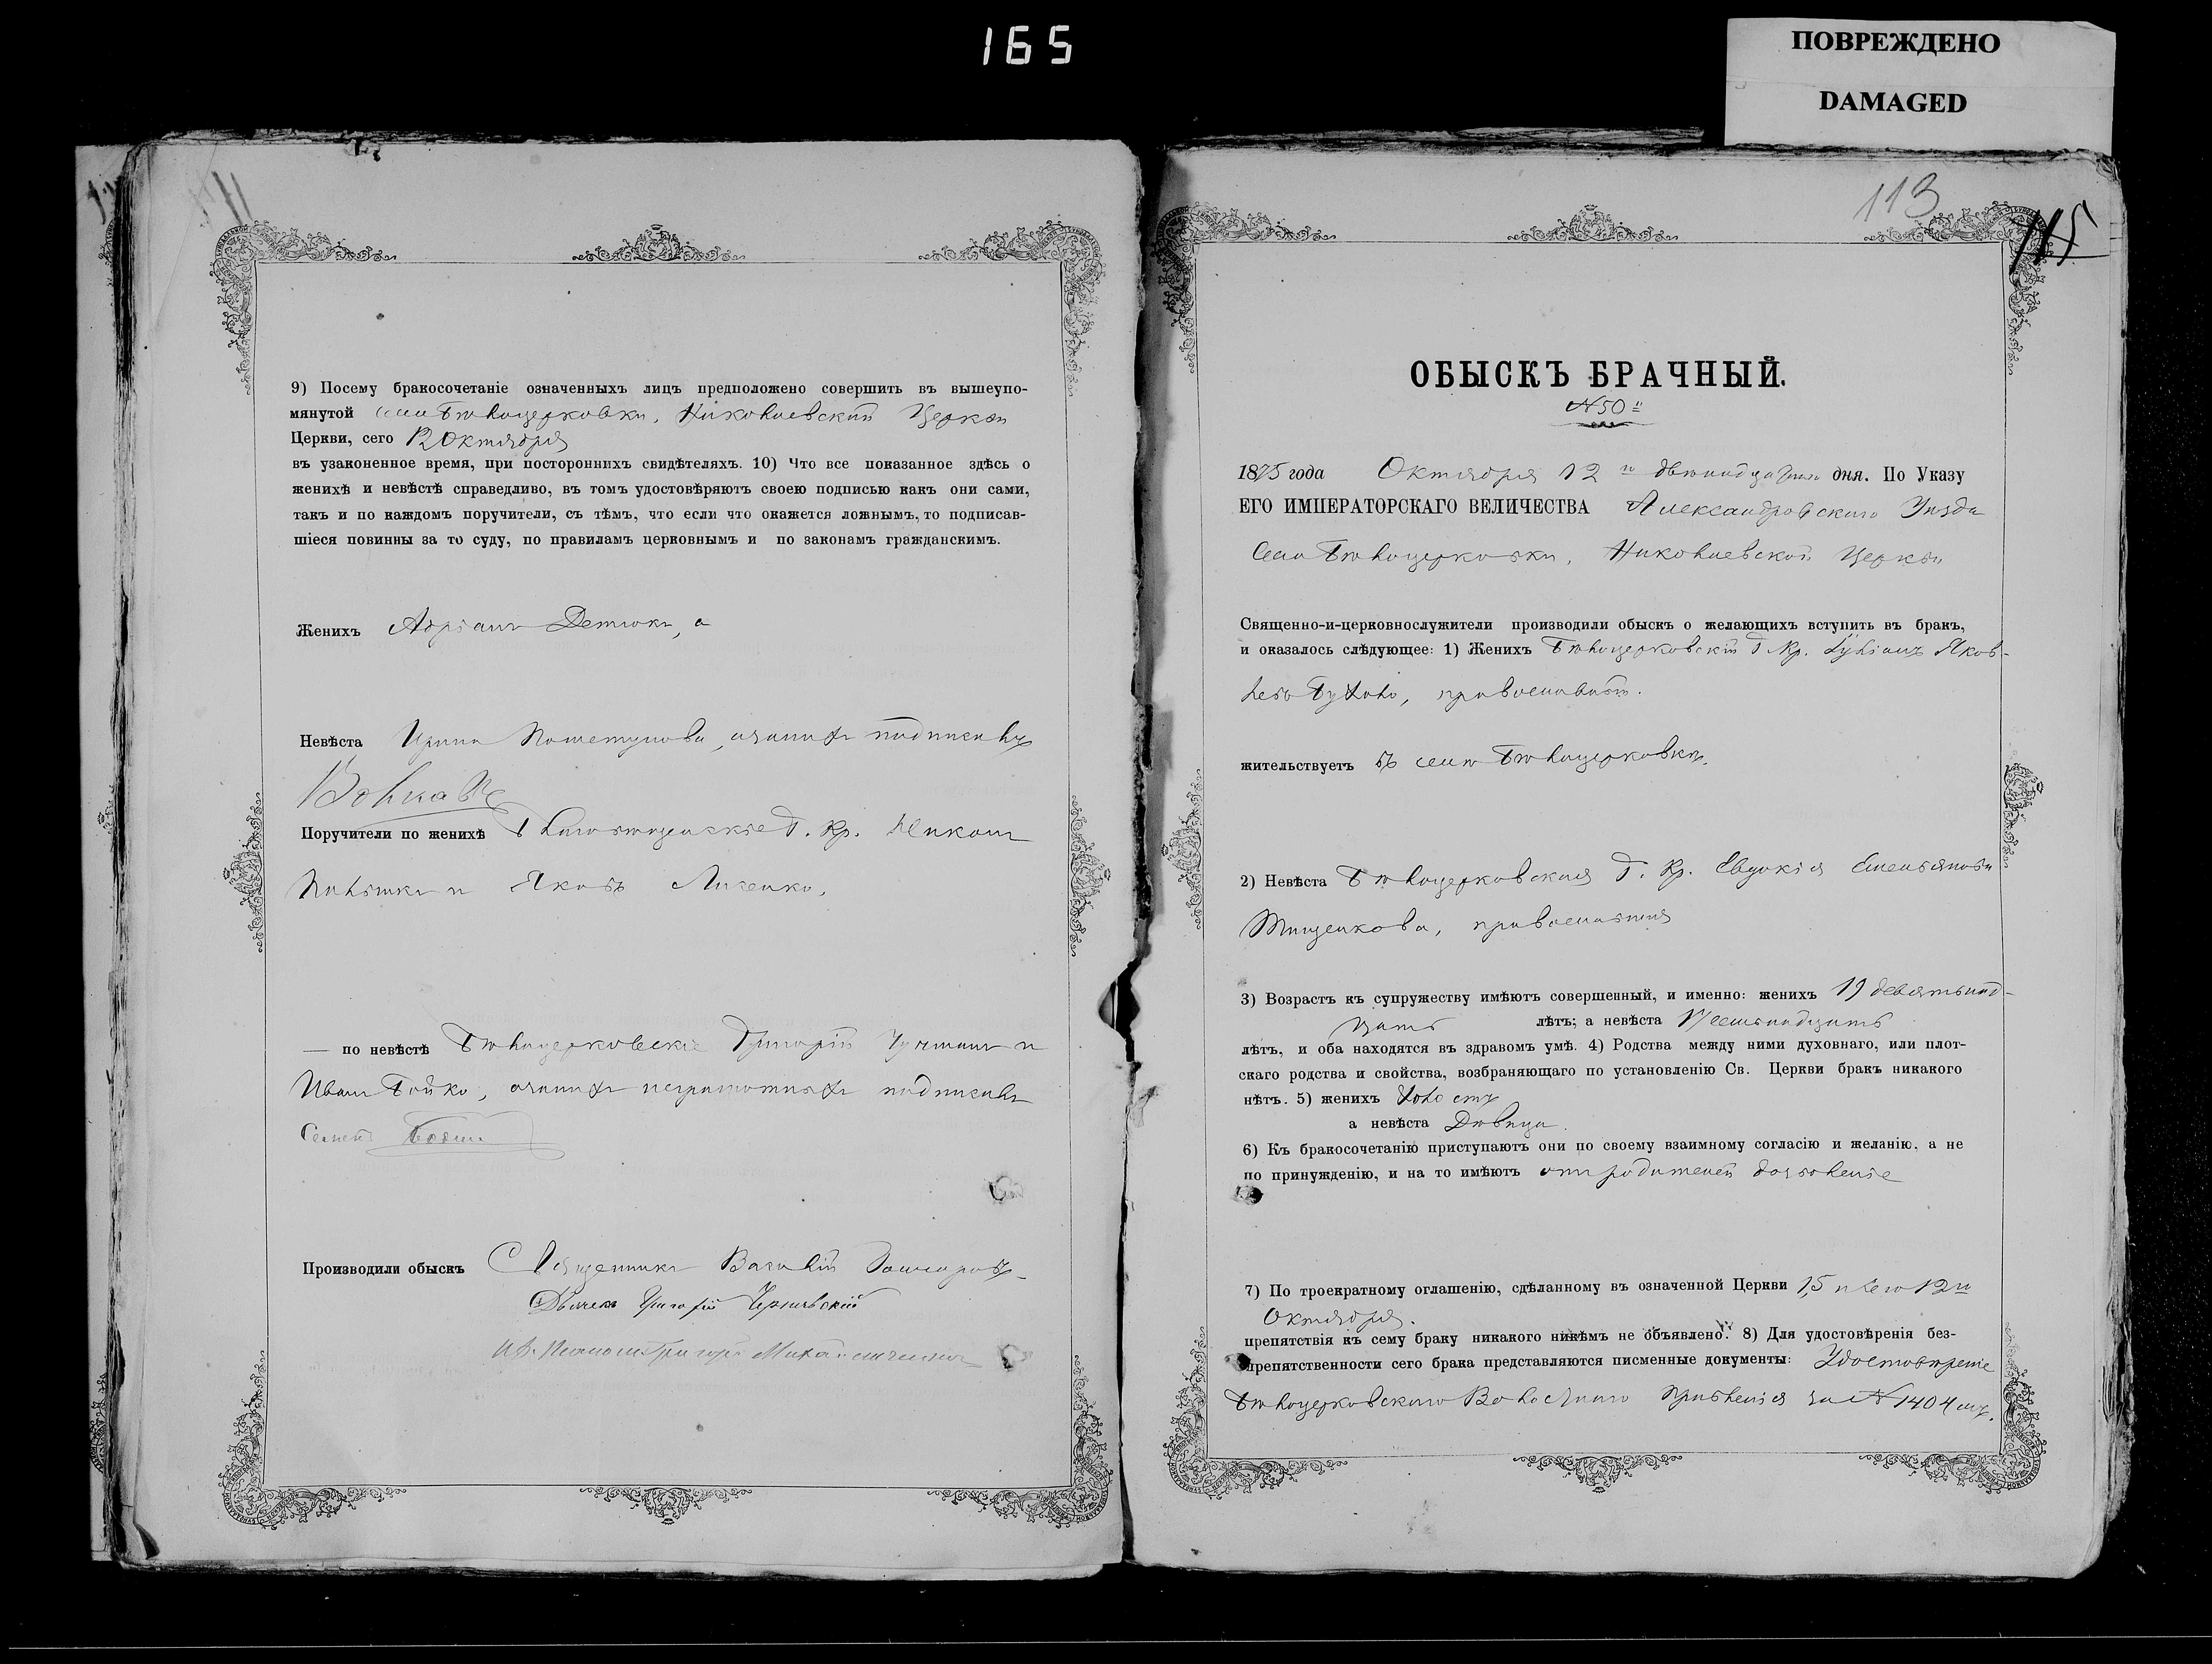 165
ПОВРЕЖДЕНО
DAMAGED
9) Посему бракосочетаніе означенныхъ лицъ предположено совершить въ вышеупо-
мянутой села Бѣлоцерковки, Николаевской Церкви
Церкви, сего 12 Октября
въ узаконенное время, при постороннихъ свидѣтеляхъ. 10) Что все показанное здѣсь о
женихѣ и невѣстѣ справедливо, въ томъ удостовѣряютъ своею подписью какъ они сами,
такъ и по каждомъ поручители, съ тѣмъ, что если что окажется ложнымъ, то подписав-
шіеся повинны за то суду, по правиламъ церковнымъ и по законамъ гражданскимъ.
Женихъ Адріанъ Детюкъ, а
Невѣста Ирина
Поручители по женихѣ Г. Кр.
Яковъ Лисенко,
— по невѣстѣ Бѣлоцерковскіе Григорій
Иванъ Бойко, неграмотныхъ
Производили обыскъ Священникъ Василій
Дьячекъ Григорій Чернявскій
113
115
ОБЫСКЪ БРАЧНЫЙ.
№ 50
1875 года Октября 12 го двѣнадцатаго дня. По Указу
ЕГО ИМПЕРАТОРСКАГО ВЕЛИЧЕСТВА Александровскаго Уѣзда
Села Бѣлоцерковки, Николаевской Церкви
Священно-и-церковнослужители производили обыскъ о желающихъ вступить въ бракъ,
и оказалось слѣдующее: 1) Женихъ Бѣлоцерковскій Г. Кр. Іуліанъ Яков-
левъ православный.
жительствуетъ въ селѣ Бѣлоцерковкѣ.
2) Невѣста Бѣлоцерковская Г. Кр. Евдокія Емельянова
Тищенкова, православная
3) Возрастъ къ супружеству имѣютъ совершенный, и именно: женихъ 19 девятьнад-
цать лѣтъ; а невѣста 17 семьнадцать
лѣтъ, и оба находятся въ здравомъ умѣ. 4) Родства между ними духовнаго, или плот-
скаго родства и свойства, возбраняющаго по установленію Св. Церкви бракъ никакого
нѣтъ. 5) женихъ Холостъ
а невѣста Дѣвица.
6) Къ бракосочетанію приступаютъ они по своему взаимному согласію и желанію, а не
по принужденію, и на то имѣютъ отъ родителей дозволеніе
7) По троекратному оглашенію, сдѣланному въ означенной Церкви 1, 5 и сего 12 го
Октября.
препятствія къ сему браку никакого никѣмъ не объявлено. 8) Для удостовѣренія без-
препятственности сего брака представляются писменные документы: Удостовѣреніе
Бѣлоцерковскаго Волостнаго Правленія за № 1404 мъ.